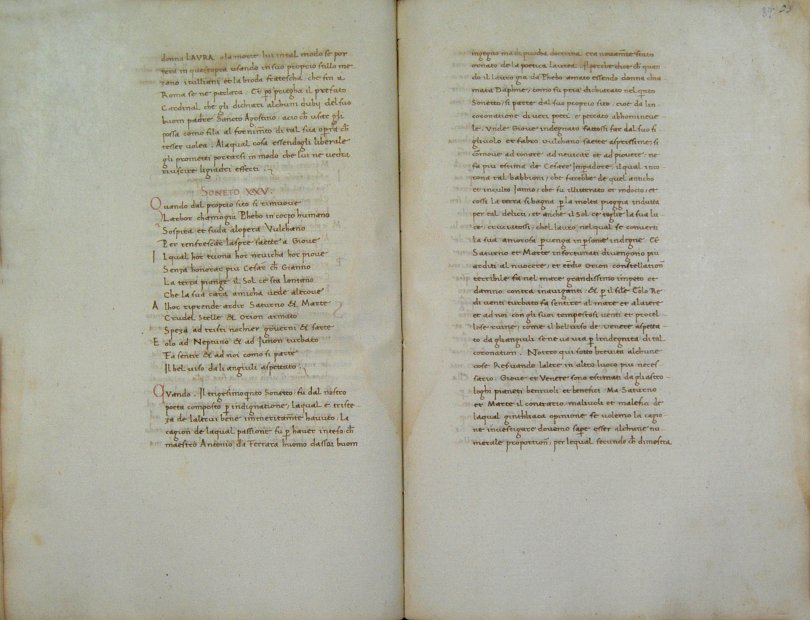 donna LAVRA. o la morte lui in tal modo se por
tera in quest opra usando in suo proprio stillo me
zano i tulliani et la broda fratescha, che fin a
Roma se ne parlara. Et po priegha il prefato
Cardinal che gli dichiari alchuni duby del suo
buon padre Sancto Agostino. acio ch usar gli
possa como fila al fornimto di tal sua opera ch
tesser volea. Ala qual cosa essendogli liberale
gli promette portarsi in modo che lui ne vedra
riuscire ligiadri effecti
SONETO XXXV.
Quando dal proprio sito si rimuove
Larbor chamo gia Phebo in corpo humano
Sospira et suda alopera Vulchano
Per renfrescar laspre saette a Giove
Il qual hor tuona hor nevicha hor piove
Senza honorar piu Cesar ch Gianno
La terra piange il Sol ce sta lontano
Che la sua cara amicha vede altrove
Alhor riprende ardir Saturno & Marte
Crudel Stelle & Orion armato
Speza ad tristi nochier governi & sarte
Eolo ad Neptuno & ad Iunon turbato
Fa sentir & ad noi como si parte
Il bel viso dali angiuli aspettato
Quando. Il trigesimoqnto Sonetto fu dal nostro
poeta composto p indignatione, laqual e triste
za de laltrui bene immeritamte havuto. La
cagion de laqual passione fu p haver inteso ch
maestro Antonio da Ferrara huomo dassai buon
ingegno ma di puocha doctrina era novamte stato
ornato de la poetica laurea. Il perche dice ch quan
do il lauro gia da Phebo amato essendo donna chia
mata Daphne, como fu pera dichiarato nel qnto
Sonetto, si parte dal suo proprio sito, cioe da lin
coronatione di veri poeti e peccato abhominevo
le. Unde Giove indegnato fattossi far dal suo fi
gliuolo et fabro vulchano saette asprissime, si
comove ad tonare ad nevicare et ad piovere. ne
fa piu estima de Cesare Imperadore, il qual inco
rona tal babbioni, che farebbe de quel anticho
et inculto Ianno, che fu illiterato et indocto, et
cossi la terra si bagna p la molta pioggia induta
per tal delicti, et anche il Sol ce toglie la sua lu
ce, cruciatosi, chel lauro nel qual se converti
la sua amorosa p venga in psone indegne. Et
Saturno et Marte infortunati divengono piu
arditi al nuocere, et etia Orion constellation
terribile fa nel mare grandissimo impeto et
damno contra naviganti. Et p il sile Eolo Re
di venti turbato fa sentire al mare et alaere
et ad noi con gli suoi tempestosi venti et procel
lose ruine, como il bel viso de venere aspetta
to da gli angiuli se ne va via p lindegnita di tal
coronation. Nottro qui sotto brevita alchune
cose. Resvando laltre in altro luoco piu neces
sario. Giove et Venere sono estimati da gli astro
loghi pianeti benivoli et benefici. Ma Saturno
et Marte il contrario, malivoli et malefici. de
laqual ginthliaca opinione se volemo la cagio
ne investigare dovemo sape esser alchune nu
merale proportioni, per lequal secundo ch dimostra